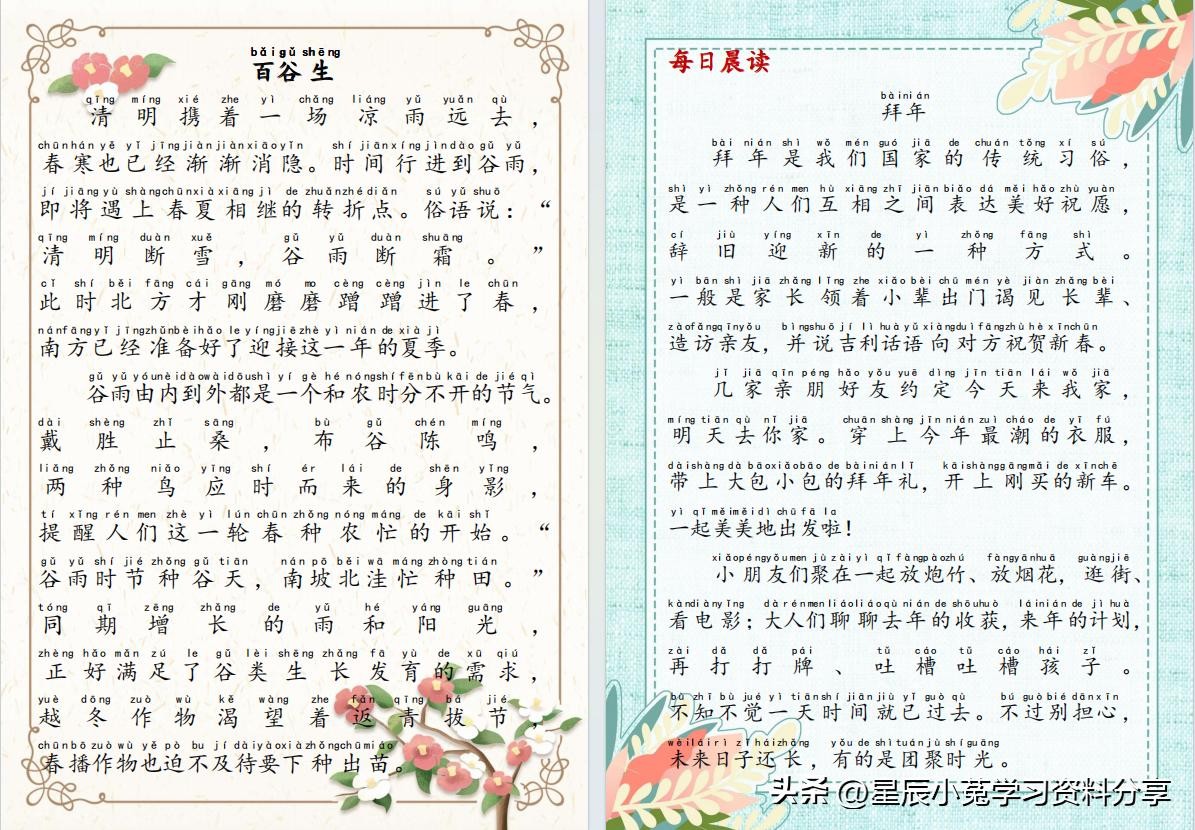 bǎi gǔ shēng
百谷生
qīng míng xié zhe yì chǎng liáng yǔ yuǎn qù
清明携着一场凉雨远去，
chūn hán yě yǐ jīng jiàn jiàn xiāo yǐn shí jiān xíng jìn dào gǔ yǔ
春寒也已经渐渐消隐。时间行进到谷雨，
jí jiāng yù shàng chūn xià xiāng jì de zhuǎn zhé diǎn sú yǔ shuō
即将遇上春夏相继的转折点。俗语说：“
qīng míng duàn xuě gǔ yǔ duàn shuāng
清明断雪，谷雨断霜。”
cǐ shí běi fāng cái gāng mó mo cèng cèng jìn le chūn
此时北方才刚磨磨蹭蹭进了春，
nán fāng yǐ jīng zhǔn bèi hǎo le yíng jiē zhè yì nián de xià jì
南方已经准备好了迎接这一年的夏季。
gǔ yǔ yóu nèi dào wài dōu shì yí gè hé nóng shí fēn bù kāi de jié qì
谷雨由内到外都是一个和农时分不开的节气。
dài shèng zhǐ sāng bù gǔ chén míng
戴胜止桑，布谷陈鸣，
liǎng zhǒng niǎo yīng shí ér lái de shēn yǐng
两种鸟应时而来的身影，
tí xǐng rén men zhè yì lún chūn zhǒng nóng máng de kāi shǐ
提醒人们这一轮春种农忙的开始。“
gǔ yǔ shí jié zhǒng gǔ tiān nán pō běi wā máng zhòng tián
谷雨时节种谷天，南坡北洼忙种田。”
tóng qī zēng zhǎng de yǔ hé yáng guāng
同期增长的雨和阳光，
zhèng hǎo mǎn zú le gǔ lèi shēng zhǎng fā yù de xū qiú
正好满足了谷类生长发育的需求，
yuè dōng zuò wù kě wàng zhe fǎn qīng bá jié
越冬作物渴望着返青拔节，
chūn bō zuò wù yě pò bu jí dài yào xià zhǒng chū miáo
春播作物也迫不及待要下种出苗。
每日晨读
bài nián
拜年
bài nián shì wǒ mén guó jiā de chuán tǒng xí sú
拜年是我们国家的传统习俗，
shì yì zhǒng rén men hù xiāng zhī jiān biǎo dá měi hǎo zhù yuàn
是一种人们互相之间表达美好祝愿，
cí jiù yíng xīn de yì zhǒng fāng shì
辞旧迎新的一种方式。
yì bān shì jiā zhǎng lǐng zhe xiǎo bèi chū mén yè jiàn zhǎng bèi
一般是家长领着小辈出门谒见长辈、
zào fǎng qīn yǒu bìng shuō jí lì huà yǔ xiàng duì fāng zhù hè xīn chūn
造访亲友，并说吉利话语向对方祝贺新春。
jǐ jiā qīn péng hǎo yǒu yuē dìng jīn tiān lái wǒ jiā
几家亲朋好友约定今天来我家，
míng tiān qù nǐ jiā chuān shàng jīn nián zuì cháo de yī fú
明天去你家。穿上今年最潮的衣服，
dài shàng dà bāo xiǎo bāo de bài nián lǐ kāi shàng gāng mǎi de xīn chē
带上大包小包的拜年礼，开上刚买的新车。
yì qǐ měi měi dì chū fā la
一起美美地出发啦！
xiǎo péng yǒu men jù zài yì qǐ fàng pào zhú fàng yān huā guàng jiē
小朋友们聚在一起放炮竹、放烟花，逛街、
kàn diàn yǐng dà rén men liáo liáo qù nián de shōu huò lái nián de jì huà
看电影；大人们聊聊去年的收获，来年的计划，
zài dǎ dǎ pái tǔ cáo tǔ cáo hái zǐ
再打打牌、吐槽吐槽孩子。
bù zhī bù jué yì tiān shí jiān jiù yǐ guò qù bú guò bié dān xīn
不知不觉一天时间就已过去。不过别担心，
wèi lái rì zǐ hái zhǎng yǒu de shì tuán jù shí guāng
未来日子还长，有的是团聚时光。
头条 @星辰小菟学习资料分享